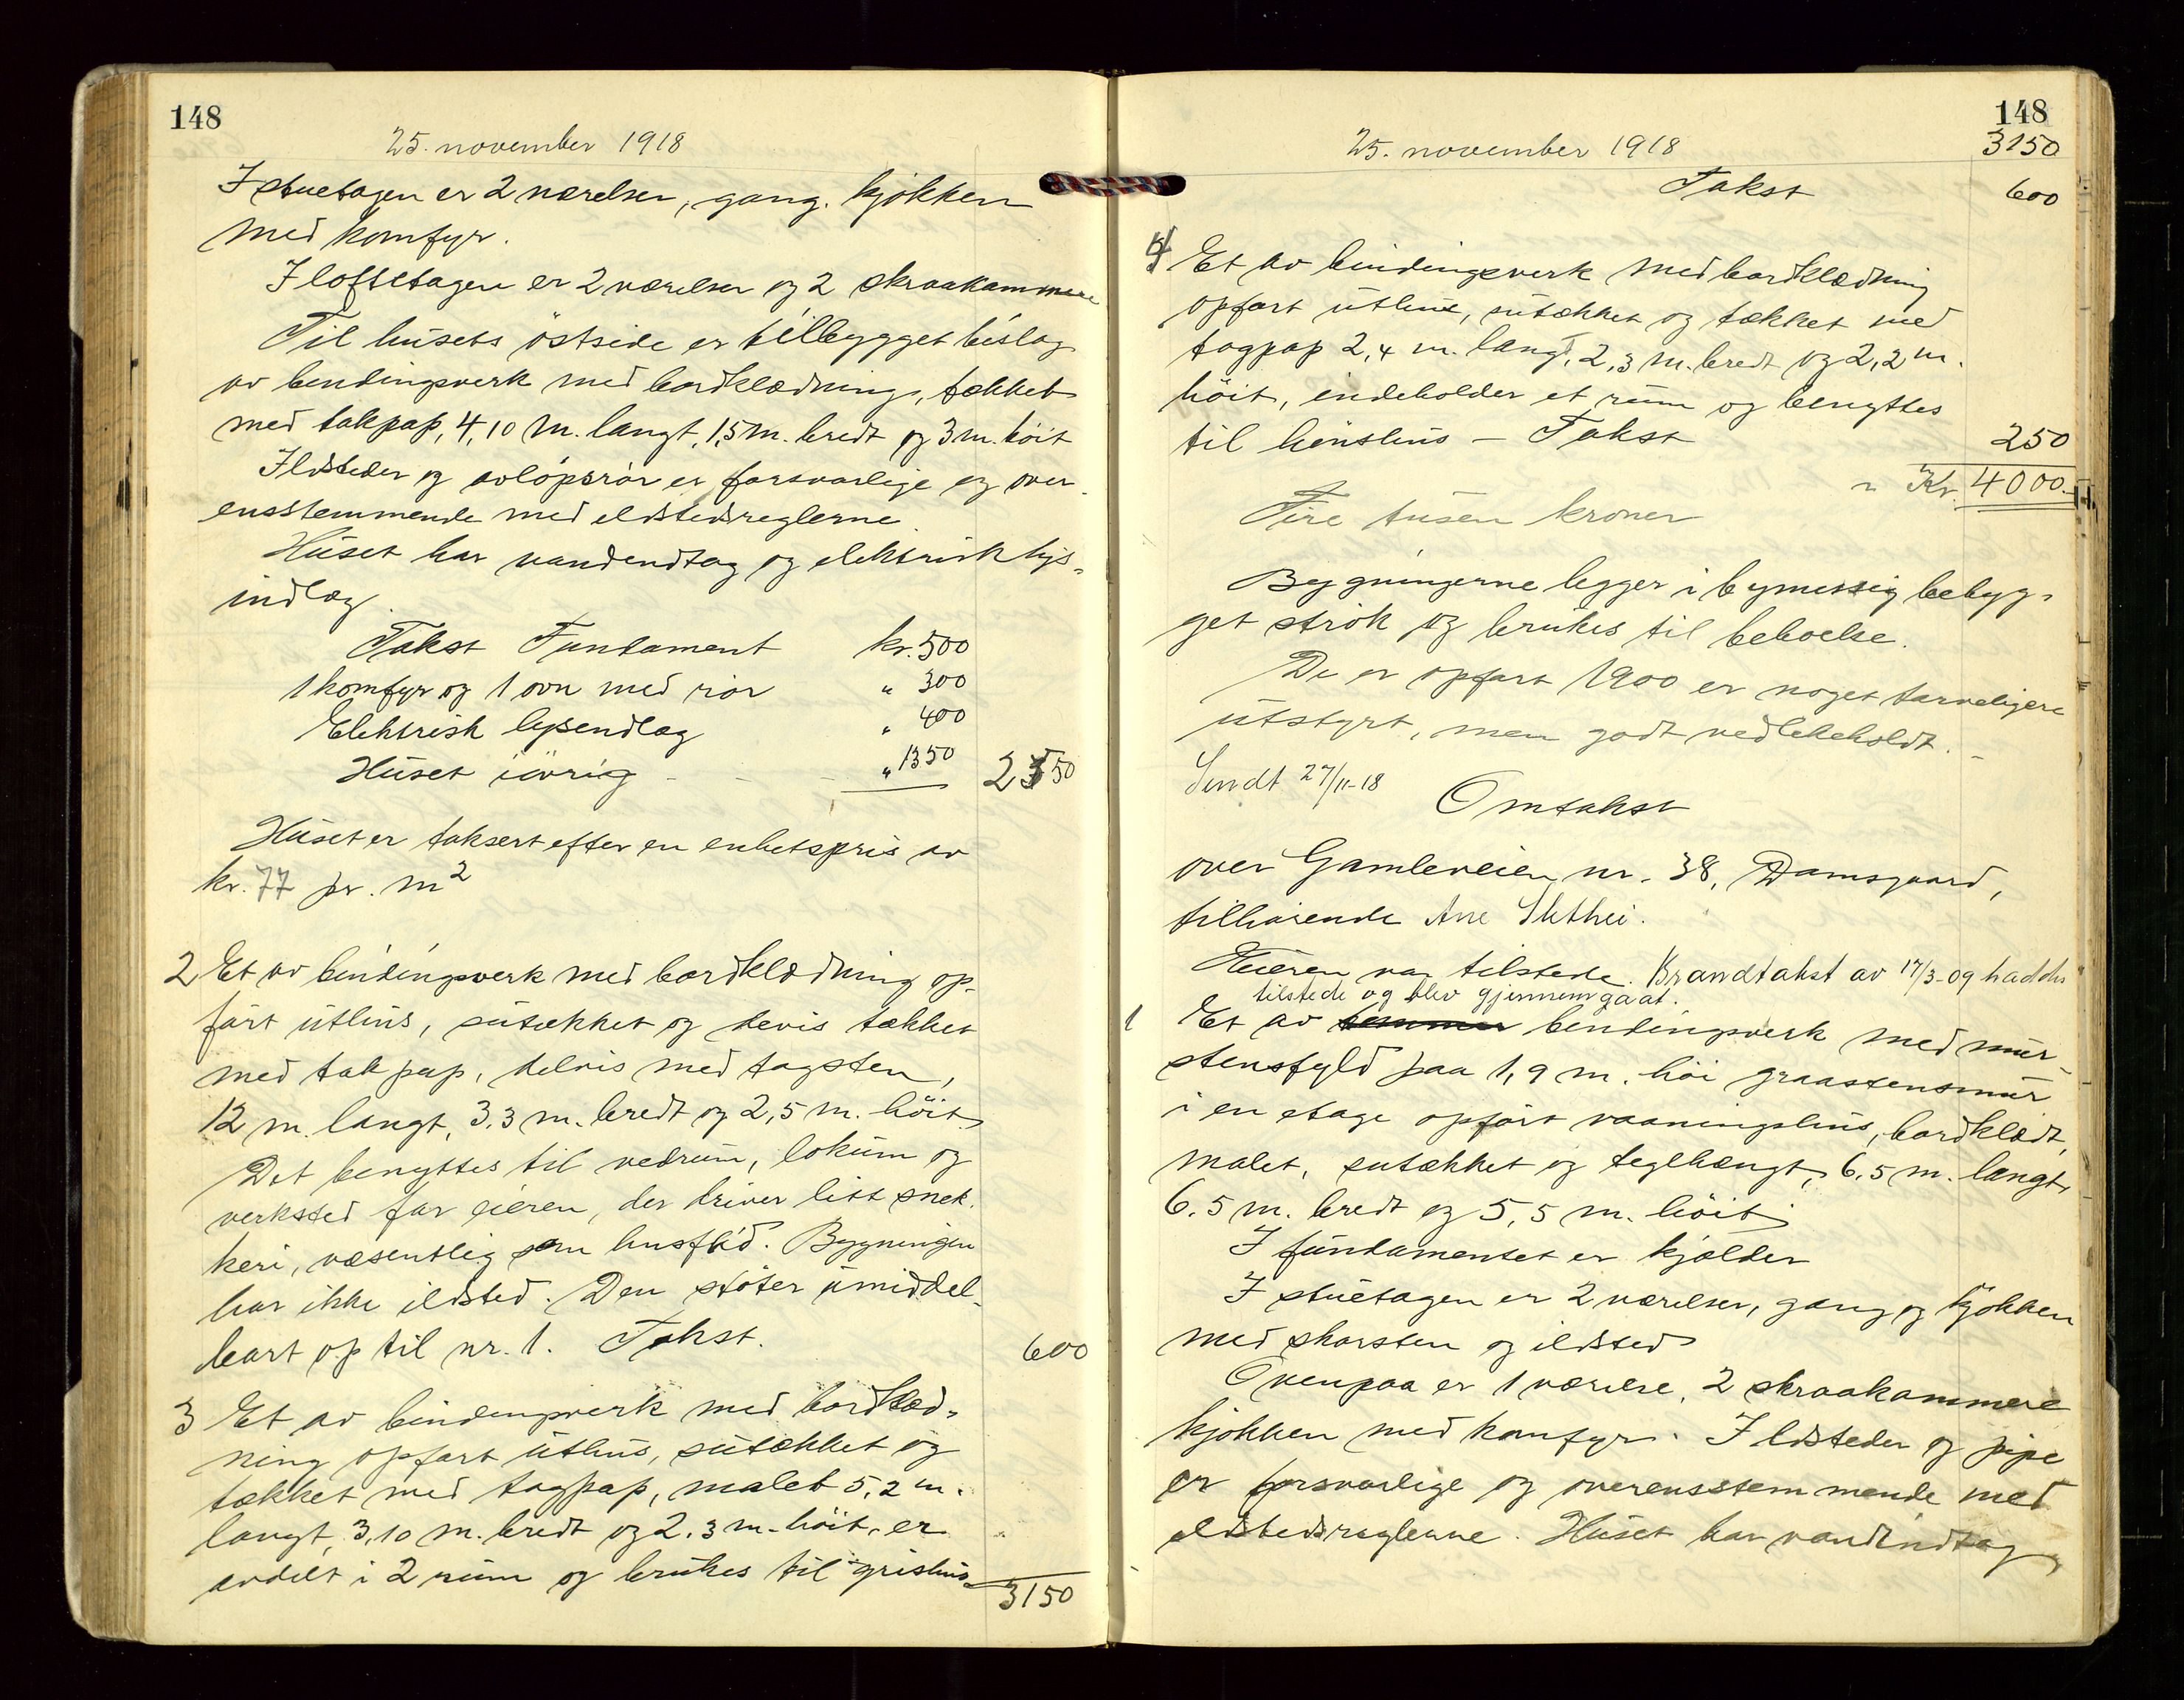 148
25. november 1918
I stuetagen er 2 værelser, gang, kjøkken
med komfyr.
I loftsetagen er 2 værelser og 2 skraakammere
Til husets østside er tilbygget bislag
av bindingsverk med bordklædning, tækket
med takpap, 4,10 m. langt, 1,5 m. bredt og 3 m. høit
Ildsteder og avløpsrør er forsvarlige og over-
ensstemmende med ildstedsreglerne.
Huset har vandindtag og elektrisk lys-
indlæg
Takst Fundament kr. 500
1 komfyr og 1 ovn med rør " 300
Elektrisk lysindlæg " 400
Huset iøvrig - - - " 1350
2350
Huset er taksert efter en enhetspris av
kr. 77 pr. m²
2 Et av bindingsverk med bordklædning op-
ført uthus, sutækket og delvis tækket
med takpap, delvis med tagsten,
12 m. langt, 3,3 m. bredt og 2,5 m. høit.
Det benyttes til vedrum, lokum og
verksted for eieren, der driver litt snek-
keri, væsentlig som husflid. Bygningen
har ikke ildsted. Den støter umiddel-
bart op til nr. 1. Takst. 600
3 Et av bindingsverk med bordklæd-
ning opført uthus, sutækket og
tækket med tagpap, malet 5,2 m.
langt, 3,10 m. bredt og 2,3 m. høit, er
avdelt i 2 rum og brukes til grishus
3150
148
25. november 1918 3150
Takst 600
4 Et av bindingsverk med bordklædning
opført uthus, sutækket og tækket med
tagpap 2,4 m. langt, 2,3 m. bredt og 2,2 m.
høit, indeholder et rum og benyttes
til hønshus - Takst 250
Kr. 4000.-
Fire tusen kroner
Bygningerne ligger i bymessig bebyg-
get strøk og brukes til beboelse.
De er opført 1900 er noget tarveligere
utstyrt, men godt vedlikeholdt. -
Sendt 27/11-18
Omtakst
over Gamleveien nr. 38, Damsgaard,
tilhørende Ane Slethei.
Eieren var tilstede. Brandtakst av 17/3-09 haddes
tilstede og blev gjennemgaat.
1 Et av tømmer bindingsverk med mur-
stensfyld paa 1,9 m. høi graastensmur
i en etage opført vaaningshus, bordklædt,
malet, sutækket og teglhængt, 6,5 m. langt,
6,5 m. bredt og 5,5 m. høit.
I fundamentet er kjælder
I stuetagen er 2 værelser, gang og kjøkken
med skorsten og ildsted
Ovenpaa er 1 værelse, 2 skraakammere
kjøkken med komfyr. Ildsteder og pipe
er forsvarlige og overensstemmende med
ildstedsreglerne. Huset har vandindtag,